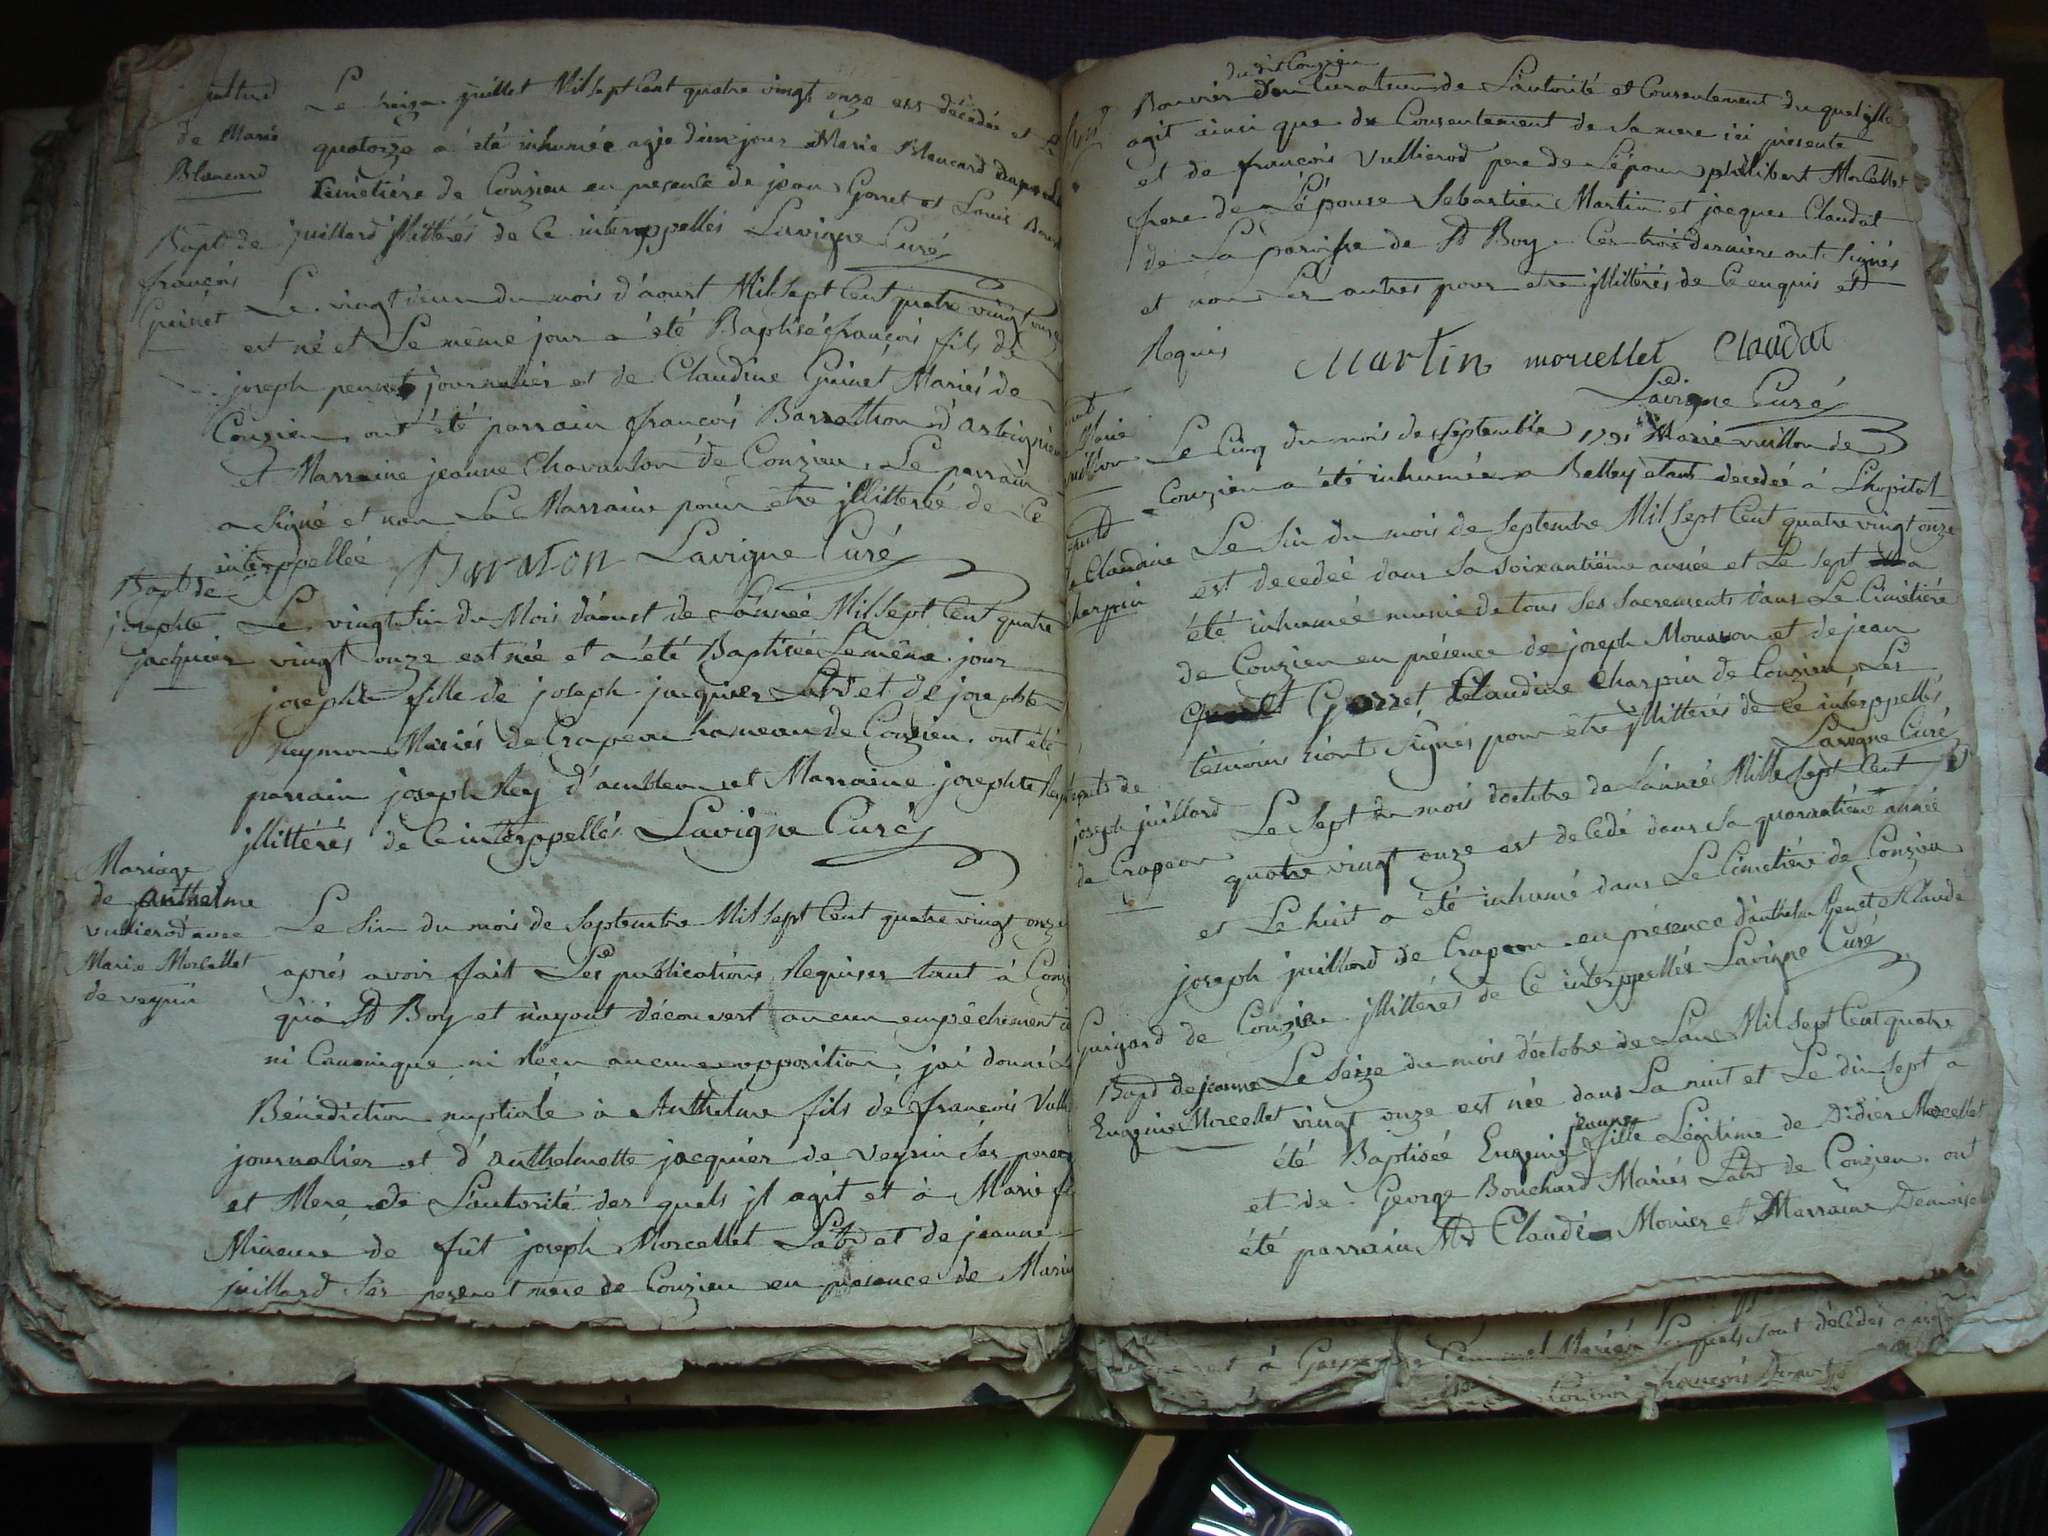 de Marie
Blancard
Le treize juillet Mil sept Cent quatre vingt onze est décédée et Le
quatorze a été inhumée agée d'un jour Marie Blancard dans Le
Cimétiére de Conzieu en presence de jean Gorret et Louis
juillard jllittérés de Ce interppellés Lavigne Curé
Bapt de
françois
Guinet
Le vingt deux du mois d'aoust Mil Sept Cent quatre vingt onze
est né et Le même jour a été Baptisé françois fils de
joseph journalier et de Claudine Guinet Mariés de
Conzieu, ont été parrain françois Barrathon d'arboignieu
et Marraine jeanne Chavanton de Conzieu, Le parrain
a Signé et non La Marraine pour être jllitterée de Ce
interppellée Baraton Lavigne Curé
Bapt de
josephte
jacquier
Le vingt Six du Mois d'aoust de L'année Mil Sept Cent quatre
vingt onze est née et a été Baptisée Le même jour
josephte fille de joseph jacquier Labr et de josephte
Reymon Mariés de Crapeou hameau de Conzieu, ont été
parrain joseph Rey d'ambleon et Marraine josephte
jllittérés de Ce interppellés Lavigne Curé
Mariage
de anthelme
vullierod avec
Marie Morcellet
de veyrin
Le Six du mois de Septembre Mil sept Cent quatre vingt onze
aprés avoir fait Les publications Requises tant à
qu'à St Boy et n'ayant découvert aucun empêchement
ni Canonique ni Reçu aucune opposition, j'ai donné
Bénédiction nuptiale à Anthelme fils de françois
journalier et d'anthelmette jacquier de veyrin Ses pere
et Mere de L'autorité des quels jl agit et à Marie
Mineure de fût joseph Morcellet Labr et de jeanne
juillard Ses pere et mere de Conzieu en presence de
du dit Conzieu
Bouvier Son Curateur de L'autorité et Consentement du quel elle
agit ainsi que du Consentement de Sa mere ici présente
et de françois vullierod pere de L'époux philibert Morcellet
frere de L'épouse Sebastien Martin et jacques Claudat
de La paroisse de St Boy. Ces trois derniers ont Signés
et non Les autres pour etre jllittérés de Ce enquis et
Requis Martin morcellet Claudat
Lavigne Curé
Marie
vuillon
Le Cinq du mois de Septembre 1791 Marie vuillon de
Conzieu a été inhumée a Belley étant decedée à L'hopital
Claudine
Charpin
Le Six du mois de Septembre Mil Sept Cent quatre vingt onze
est decedeé dans Sa Soixantiéme année et Le Sept a
été inhumée munie de tous Ses Sacrements dans Le Cimétiére
de Conzieu en présence de joseph Mouron et de jean
Gorret Claudine Charpin de Conzieu Les
témoins n'ont Signés pour être jllitterés de Ce interppellés
Lavigne Curé
joseph juillard
de Crapeou
Le Sept du mois d'octobre de L'année Mille Sept Cent
quatre vingt onze est decedé dans Sa quarantiéme année
et Le huit a été inhumé dans Le Cimetiére de Conzieu
joseph juillard de Crapeou en présence d'anthelme Genet et Claude
Guigard de Conzieu jllittérés de Ce interppellés Lavigne Curé
Bapt de jeanne
Eugenie Morcellet
Le Seize du mois d'octobre de L'an Mil Sept Cent quatre
vingt onze est née dans La nuit et Le dix Sept a
jeanne
été Baptisée Eugenie fille Légitime de Didier Morcellet
et de George Bouchard Mariés Labr de Conzieu. ont
été parrain Mr Claude Monier et Marraine